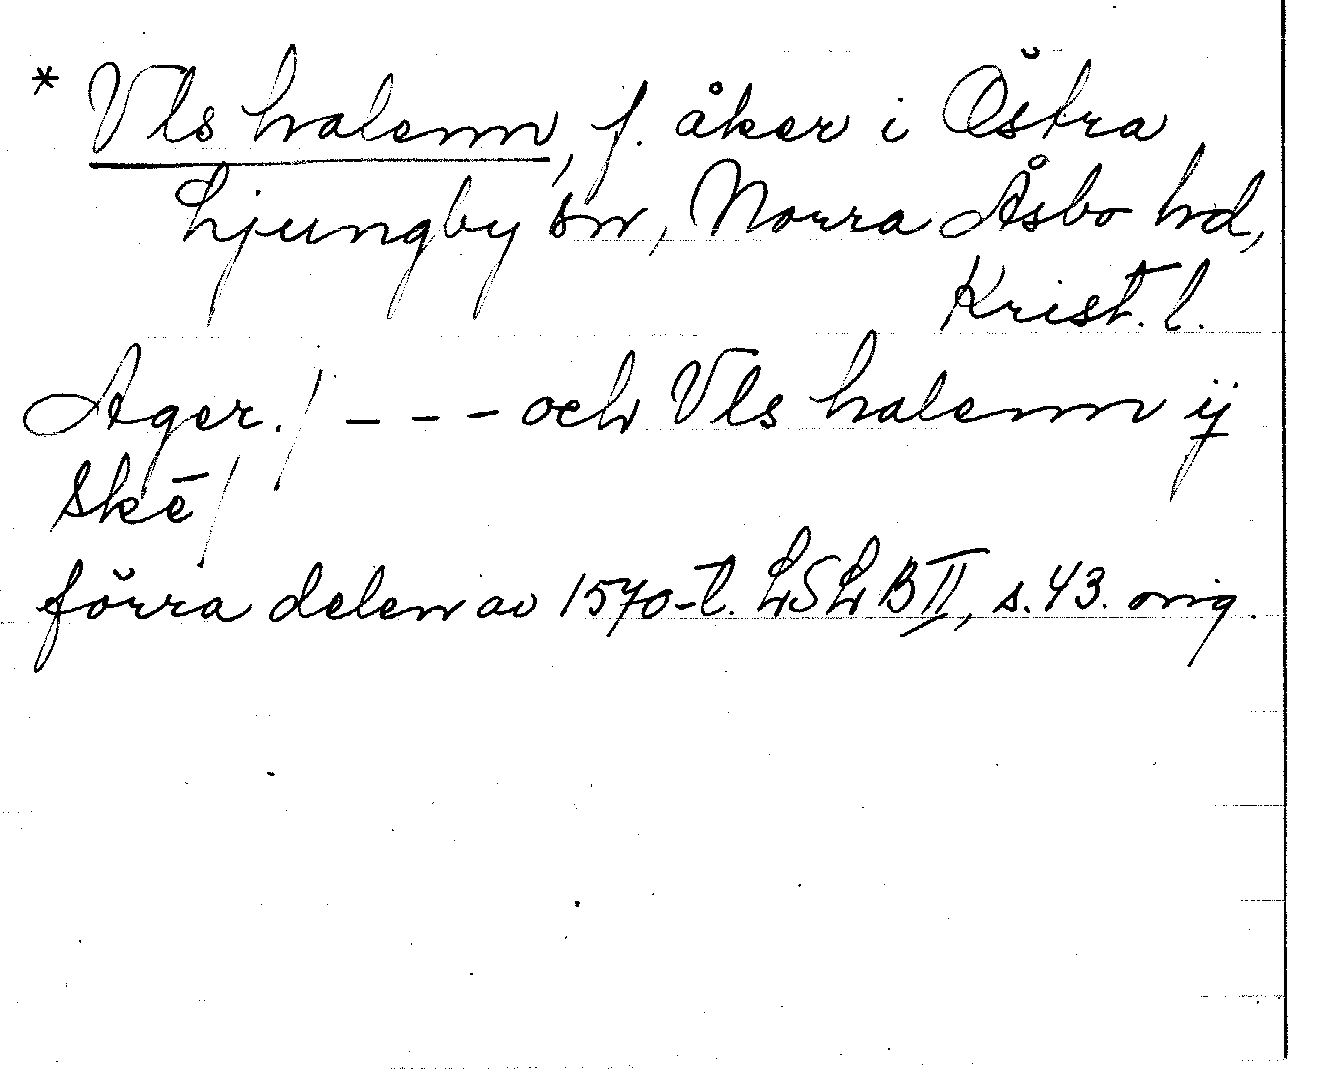 * Vls halenn, f. åker i Östra
Ljungby sn, Norra Åsbo hd,
Krist. l.
Ager. / - - - och Vls halenn ij
skē /
förra delen av 1570-t. LSLB II, s. 43. orig.